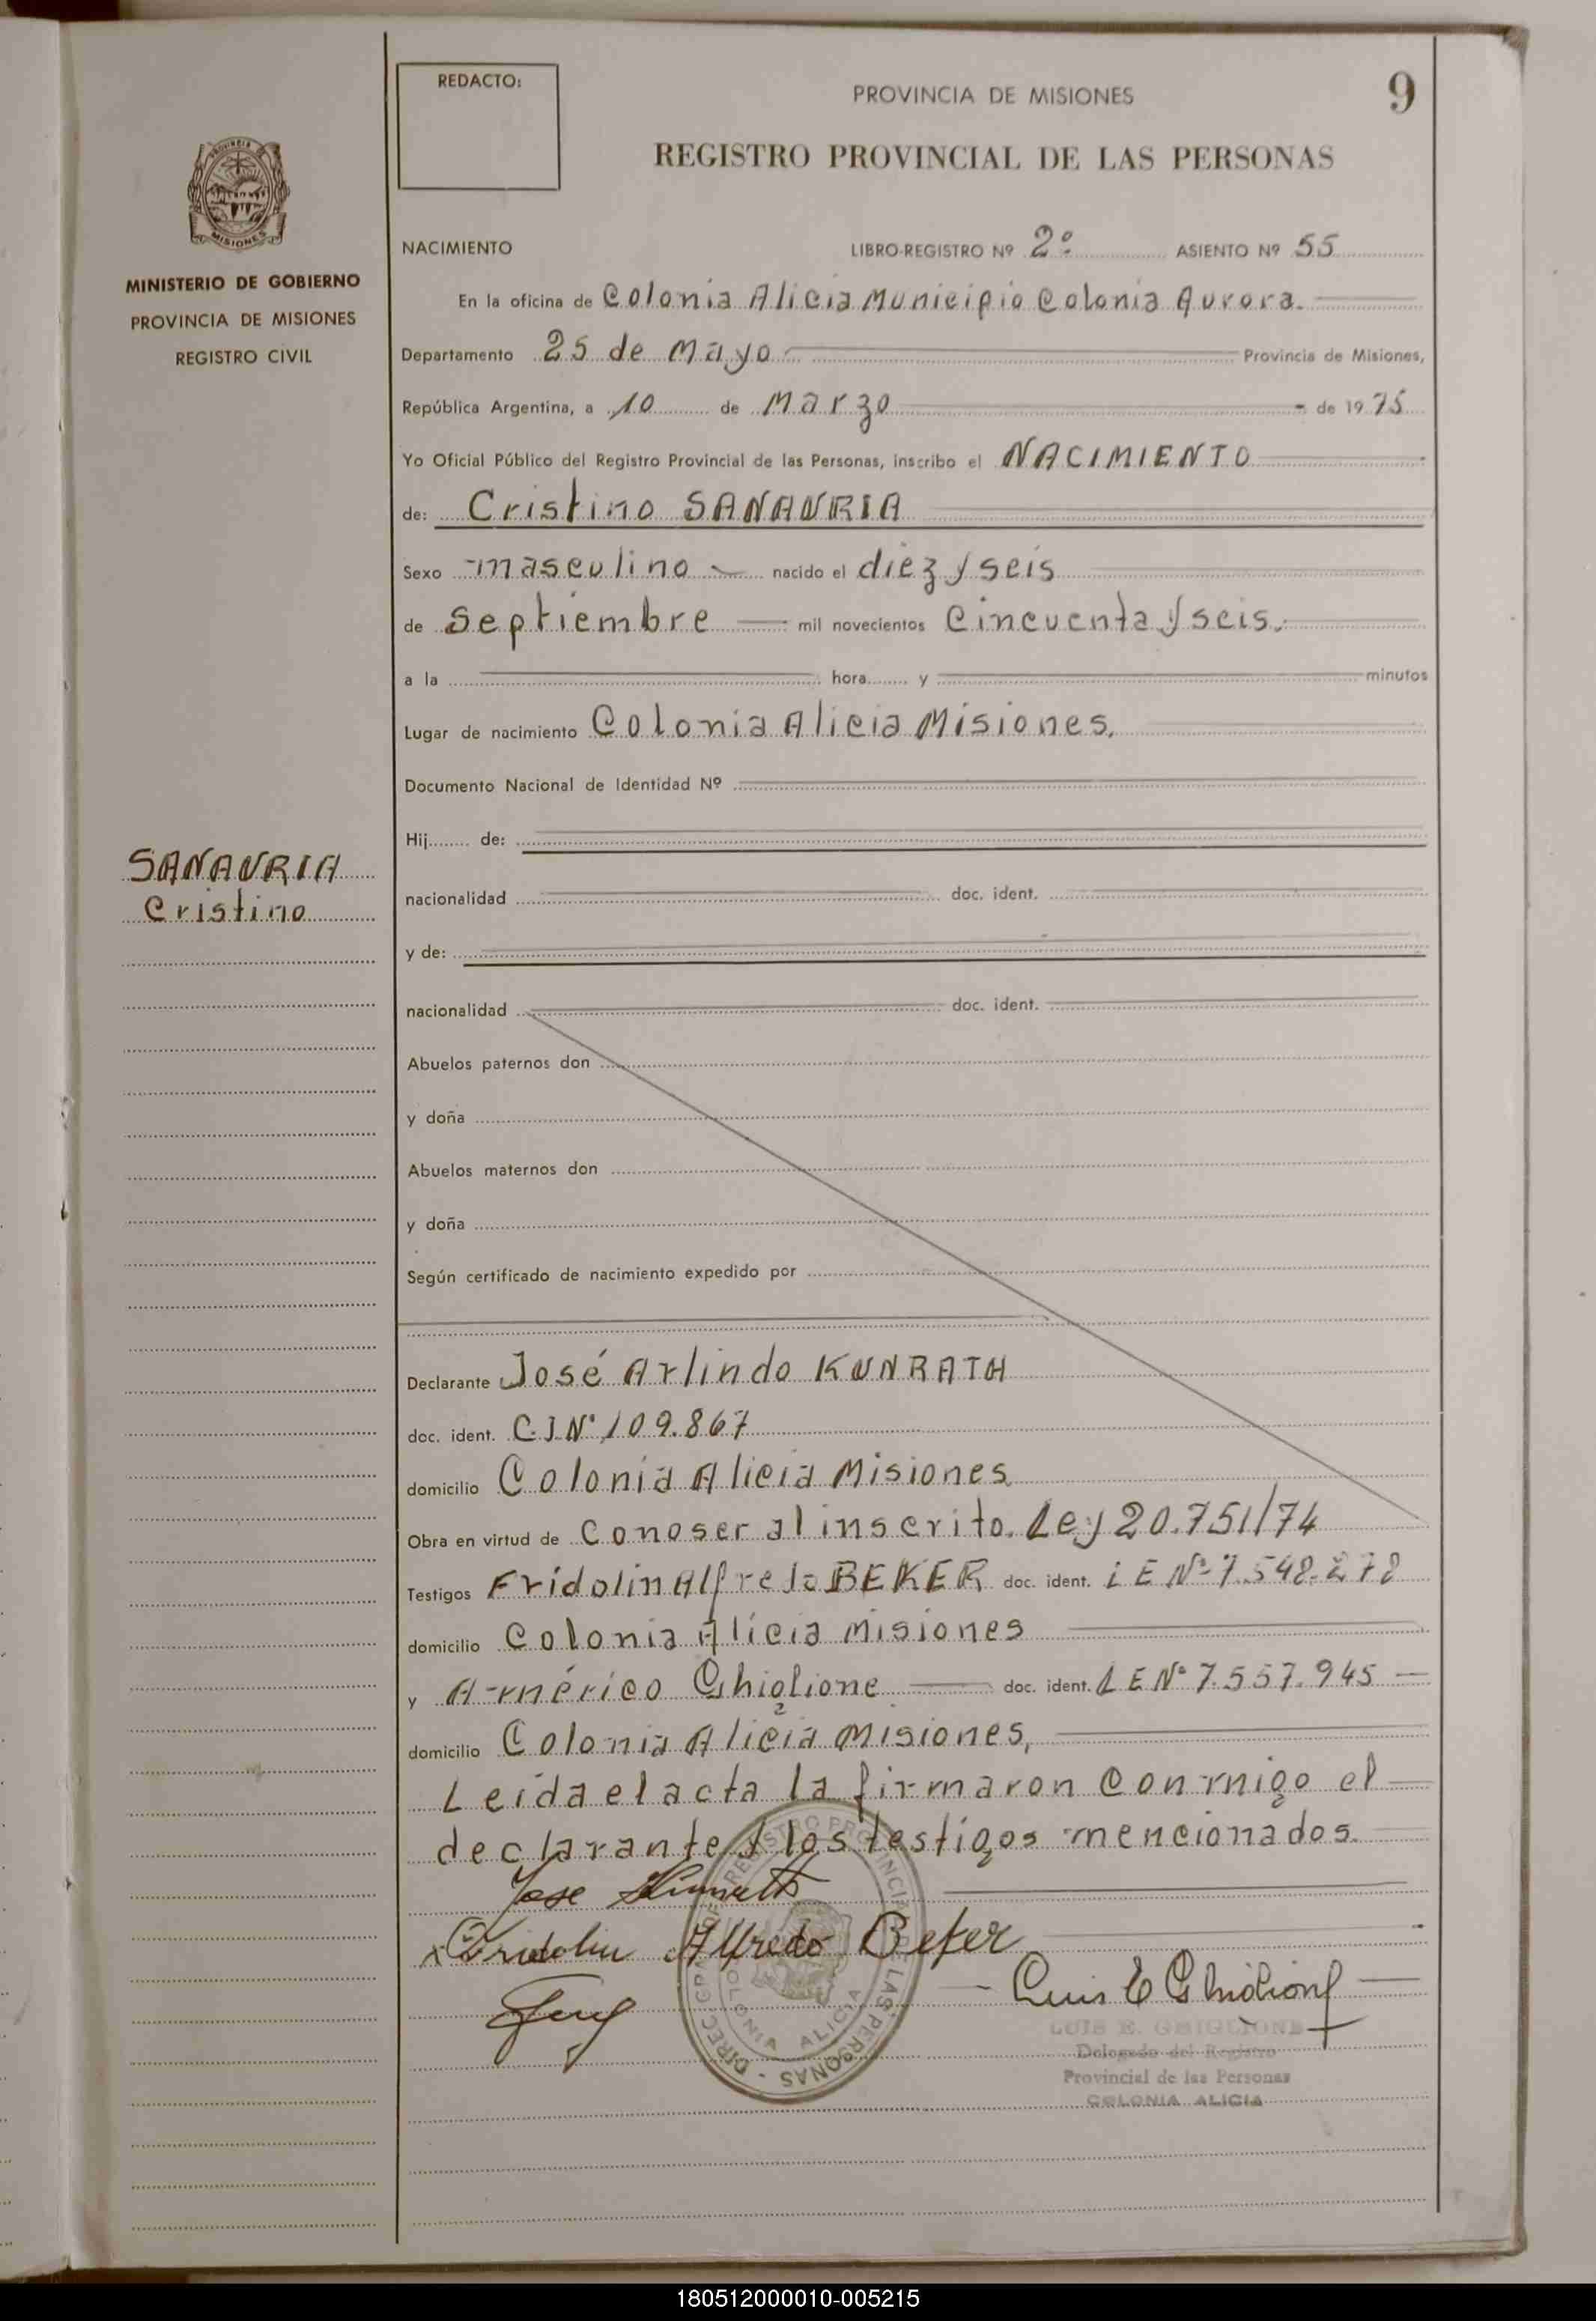 REDACTO:
PROVINCIA DE MISIONES
9
REGISTRO PROVINCIAL DE LAS PERSONAS
MISIONES
MINISTERIO DE GOBIERNO
PROVINCIA DE MISIONES
REGISTRO CIVIL
NACIMIENTO LIBRO-REGISTRO Nº 2º ASIENTO Nº 55
En la oficina de Colonia Alicia Municipio Colonia Aurora.
Departamento 25 de Mayo Provincia de Misiones,
República Argentina, a 10 de Marzo de 1975
Yo Oficial Público del Registro Provincial de las Personas, inscribo el NACIMIENTO
de: Cristino SANAURIA
Sexo masculino nacido el diez y seis
de Septiembre mil novecientos Cincuenta y seis.
a la hora y minutos
Lugar de nacimiento Colonia Alicia Misiones.
Documento Nacional de Identidad Nº
Hij de:
SANAURIA
Cristino
nacionalidad doc. ident.
y de:
nacionalidad doc. ident.
Abuelos paternos don
y doña
Abuelos maternos don
y doña
Según certificado de nacimiento expedido por
Declarante José Arlindo KUNRATH
doc. ident. C.I Nº 109.867
domicilio Colonia Alicia Misiones
Obra en virtud de Conoser al inscrito. Ley 20.751/74
Testigos Fridolin Alfredo BEKER doc. ident. L E Nº 7.548.278
domicilio Colonia Alicia Misiones
y Américo Ghiglione doc. ident. L E Nº 7.557.945
domicilio Colonia Alicia Misiones,
Leida el acta la firmaron Conmigo el
declarante y los testigos mencionados.
Jose Kunrath
Fridolin Alfredo Beker
Luis E Ghiglione
LUIS E. GHIGLIONE
Delegado del Registro
Provincial de las Personas
COLONIA ALICIA
COLONIA ALICIA
180512000010-005215